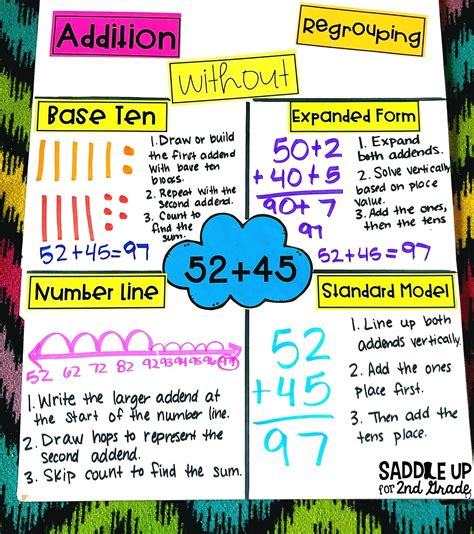 Addition
Regrouping
Without
Base Ten
1. Draw or build
the first addend
with base ten
blocks.
2. Repeat with the
second addend.
3. Count to
find the
sum.
52+45=97
Expanded Form
50+2
+40+5
90+7
97
1. Expand
both addends.
2. Solve vertically
based on place
value.
3. Add the ones,
then the tens
52+45=97
52+45
Number Line
52 62 72 82 92 93 94 95 96 97
1. Write the larger addend at
the start of the number line.
2. Draw hops to represent the
second addend.
3. Skip count to find the sum.
Standard Model
52
+45
97
1. Line up both
addends vertically.
2. Add the ones
place first.
3. Then add the
tens place.
SADDLE UP
for 2nd Grade